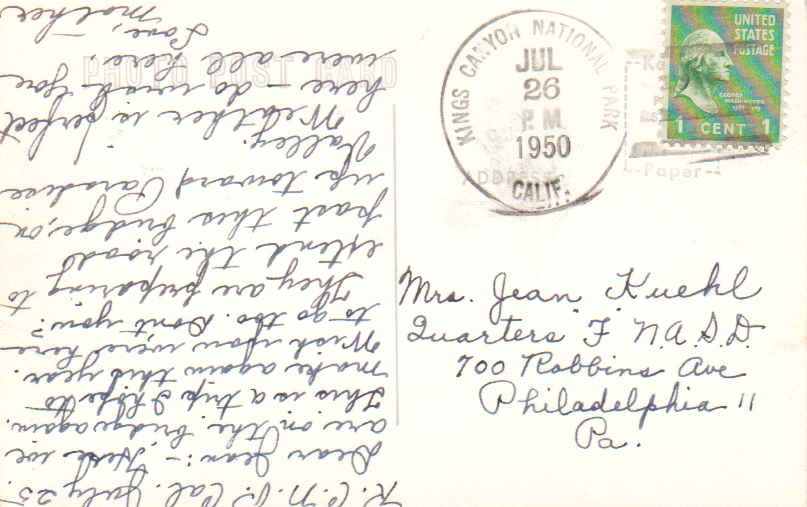 PHOTO POST CARD
K. C. N. P. Cal. July 25.
Dear Jean :- Here we
are on the bridge again.
This is a trip I hope to
make again this year.
Wish you were here
to go too. Dont you?
They are preparing to
extend the road
past this bridge, on
up toward Paradise
Valley.
Weather is perfect
here - do wish you
were all here.
Love,
Mother
KINGS CANYON NATIONAL PARK
JUL
26
P.M.
1950
CALIF.
ADDRESS
UNITED
STATES
POSTAGE
GEORGE
WASHINGTON
1 CENT 1
Paper
Mrs. Jean Kuehl
Quarters "F" N.A.S.D.
700 Robbins Ave
Philadelphia 11
Pa.